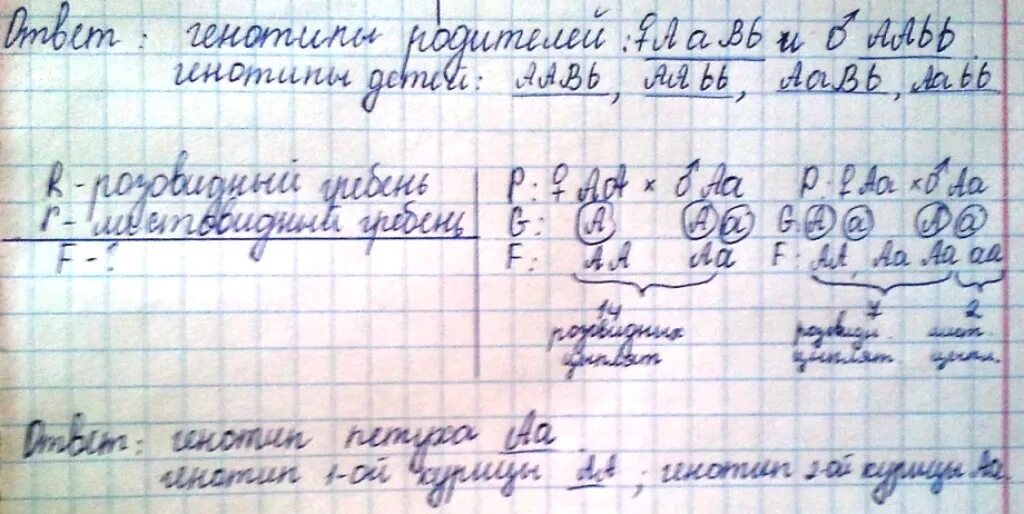 Ответ: генотипы родителей: ♀AaBb и ♂ AAbb
генотипы детей: AABb, AAbb, AaBb, Aabb
R - розовидный гребень
r - листовидный гребень
F - ?
P: ♀ AA × ♂ Aa
G: A A a
F: AA Aa
14
розовидных
цыплят
P: ♀Aa × ♂ Aa
G: A a A a
F: AA, Aa Aa aa
7
розовидн.
цыплят
2
лист.
цыпл.
Ответ: генотип петуха Aa
генотип 1-ой курицы AA; генотип 2-ой курицы Aa.